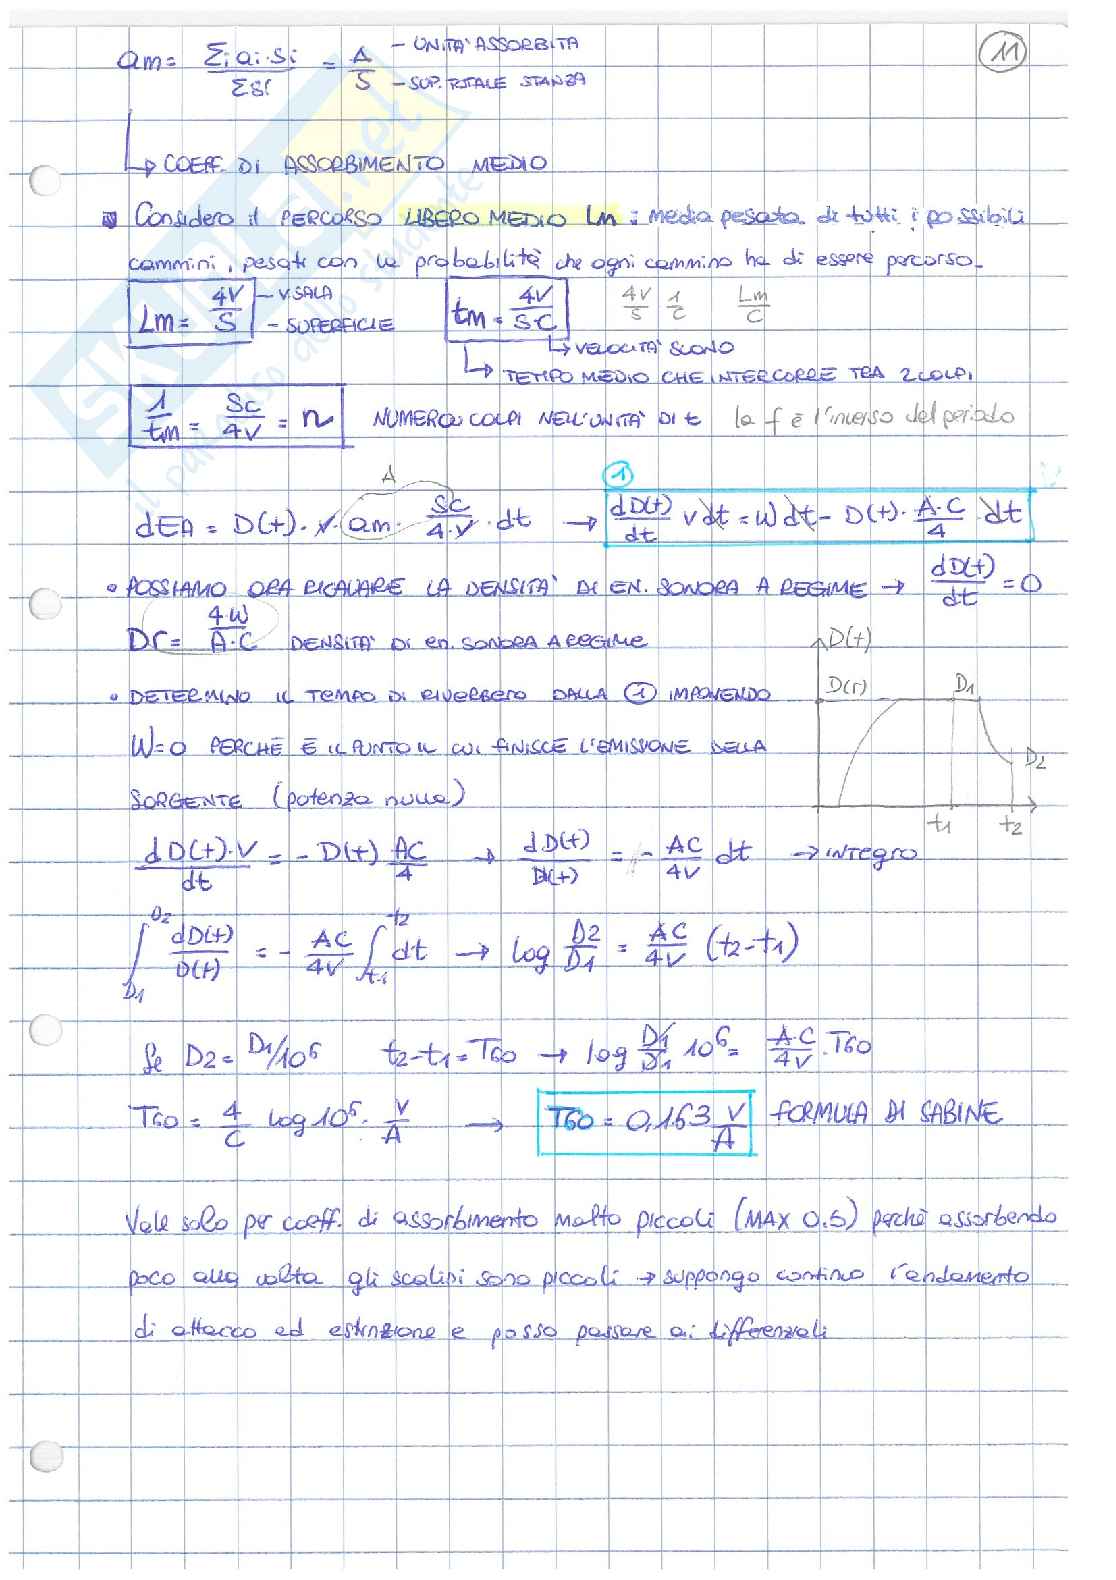 am = Σi ai·si / Σsi = A/S - UNITA' ASSORBITA - SUP. TOTALE STANZA
11
↳ COEFF. DI ASSORBIMENTO MEDIO
Considero il PERCORSO LIBERO MEDIO Lm : media pesata di tutti i possibili
cammini, pesati con la probabilità che ogni cammino ha di essere percorso.
Lm = 4V/S - V. SALA - SUPERFICIE tm = 4V/S·C 4V/S 1/C Lm/C
↳ VELOCITA' SUONO
↳ TEMPO MEDIO CHE INTERCORRE TRA 2 COLPI
1/tm = SC/4V = n NUMERO COLPI NELL'UNITA' DI t la f è l'inverso del periodo
A 1
dEA = D(t)·V·am·SC/4·V·dt → dD(t)/dt V dt = W dt - D(t)·A·C/4·dt
• POSSIAMO ORA RICAVARE LA DENSITA' DI EN. SONORA A REGIME → dD(t)/dt = 0
Dr = 4·W/A·C DENSITA' DI en. SONORA A REGIME
• DETERMINO IL TEMPO DI RIVERBERO DALLA 1 IMPONENDO
W=0 PERCHÉ È IL PUNTO IN CUI FINISCE L'EMISSIONE DELLA
SORGENTE (potenza nulla)
D(t)
D(r) D1
D2
t1 t2
dD(t)·V/dt = - D(t) AC/4 → dD(t)/D(t) = - AC/4V dt → INTEGRO
∫D1 D2 dD(t)/D(t) = - AC/4V ∫t1 t2 dt → log D2/D1 = AC/4V (t2-t1)
Se D2 = D1/10⁶ t2-t1 = T60 → log D1/D1 10⁶ = A·C/4V·T60
T60 = 4/C log 10⁶·V/A → T60 = 0,163 V/A FORMULA DI SABINE
Vale solo per coeff. di assorbimento molto piccoli (MAX 0.5) perchè assorbendo
poco alla volta gli scalini sono piccoli → suppongo continuo l'andamento
di attacco ed estinzione e posso passare ai differenziali